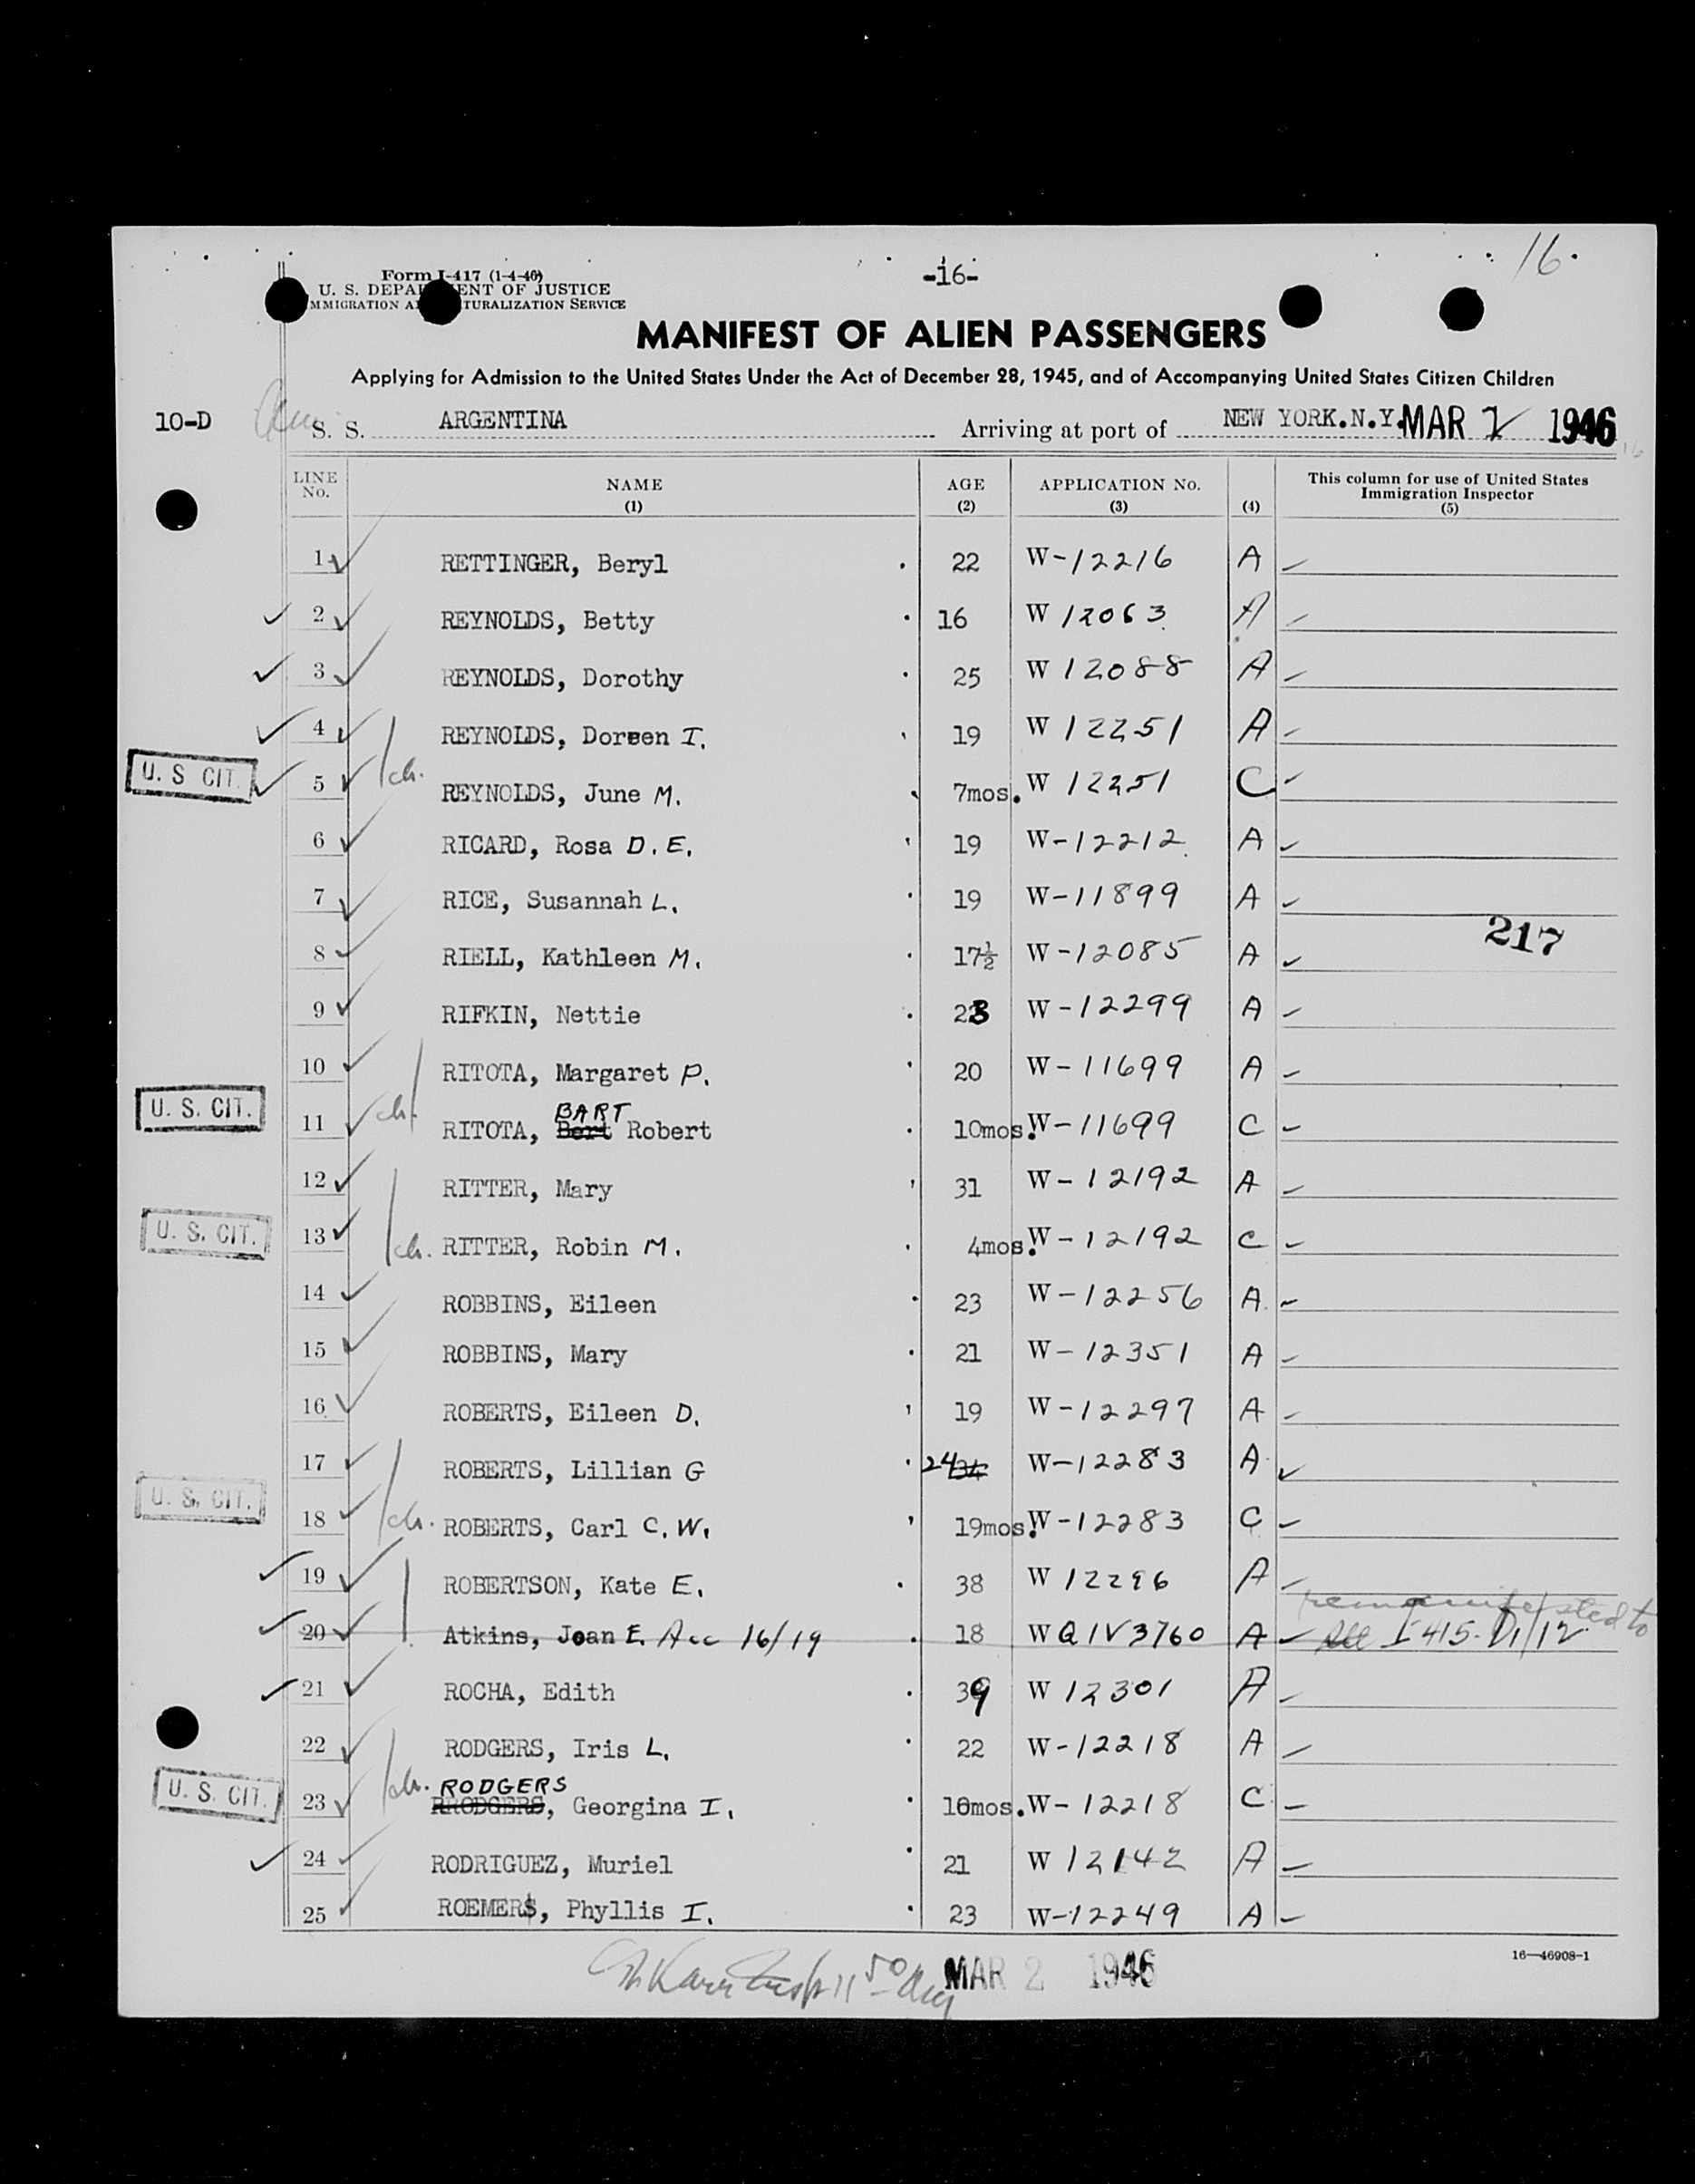 16.
Form I-417 (1-4-46)
-16-
U. S. DEPA ENT OF JUSTICE
MMIGRATION A TURALIZATION SERVICE
MANIFEST OF ALIEN PASSENGERS
Applying for Admission to the United States Under the Act of December 28, 1945, and of Accompanying United States Citizen Children
10-D S. S. ARGENTINA Arriving at port of NEW YORK.N.Y. MAR 2 1946
LINE No. NAME (1) AGE (2) APPLICATION No. (3) (4) This column for use of United States Immigration Inspector (5)
1 RETTINGER, Beryl 22 W-12216 A
2 REYNOLDS, Betty 16 W 12063 A
3 REYNOLDS, Dorothy 25 W 12088 A
4 REYNOLDS, Doreen I. 19 W 12251 A
U. S CIT. 5 ch. REYNOLDS, June M. 7mos. W 12251 C
6 RICARD, Rosa D. E. 19 W-12212 A
7 RICE, Susannah L. 19 W-11899 A
217
8 RIELL, Kathleen M. 17½ W-12085 A
9 RIFKIN, Nettie 23 W-12299 A
10 RITOTA, Margaret P. 20 W-11699 A
BART
U. S. CIT. 11 ch. RITOTA, Bert Robert 10mos. W-11699 C
12 RITTER, Mary 31 W-12192 A
U. S. CIT. 13 ch. RITTER, Robin M. 4mos. W-12192 C
14 ROBBINS, Eileen 23 W-12256 A
15 ROBBINS, Mary 21 W-12351 A
16 ROBERTS, Eileen D. 19 W-12297 A
17 ROBERTS, Lillian G 24 34 W-12283 A
U. S. CIT. 18 ch. ROBERTS, Carl C. W. 19mos. W-12283 C
19 ROBERTSON, Kate E. 38 W 12296 A
remanifested to
20 Atkins, Joan E. Acc 16/19 18 W QIV3760 A see I-415-D1/12
21 ROCHA, Edith 39 W 12301 A
22 RODGERS, Iris L. 22 W-12218 A
ch. RODGERS
U. S. CIT. 23 RRODGERS, Georgina I. 10mos. W-12218 C
24 RODRIGUEZ, Muriel 21 W 12142 A
25 ROEMERS, Phyllis I. 23 W-12249 A
16—46908-1
MAR 2 1946